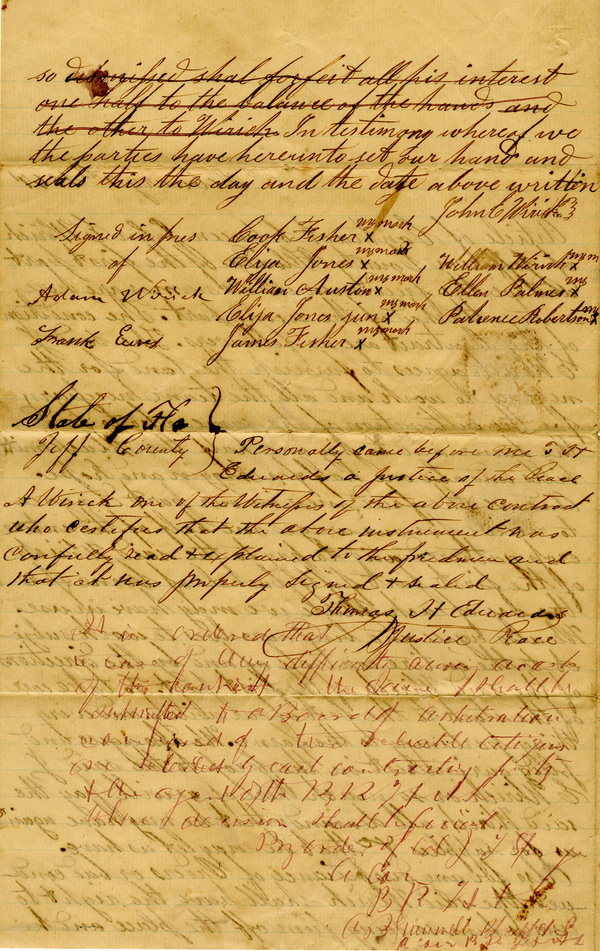 so dismissed shal forfeit all his interest
one half to the balance of the hands and
the other to Wirick In testimony whereof we
the parties have hereunto set our hand and
seals this the day and the date above written
John C Wirick
Signed in pres
of
Adam Wirick
Frank Eures
Cook Fisher my mark x
Elija Jones my mark x
William Austin my mark x
Elija Jones jun my mark x
James Fisher my mark x
William Wirick x my m
Ellen Palmer x my
Patience Robertson x my
State of Fla
Jeff County
Personally came before me T H
Edwards a justice of the Peace
A Wirick one of the Witnesses of the above contract
who certifies that the above instrument was
carefully read & explained to the freedmen and
that it was properly signed & sealed
Thomas H Edwards
Justice Peace
It is ordered that
in case of any difficulty
of this contract the same shall be
submitted to a Board of arbitration
composed of two citizens
one selected by each contracting party
& the agent of the B R F &
whose decision shall be final
By order of Col J T
A Com
B R F &